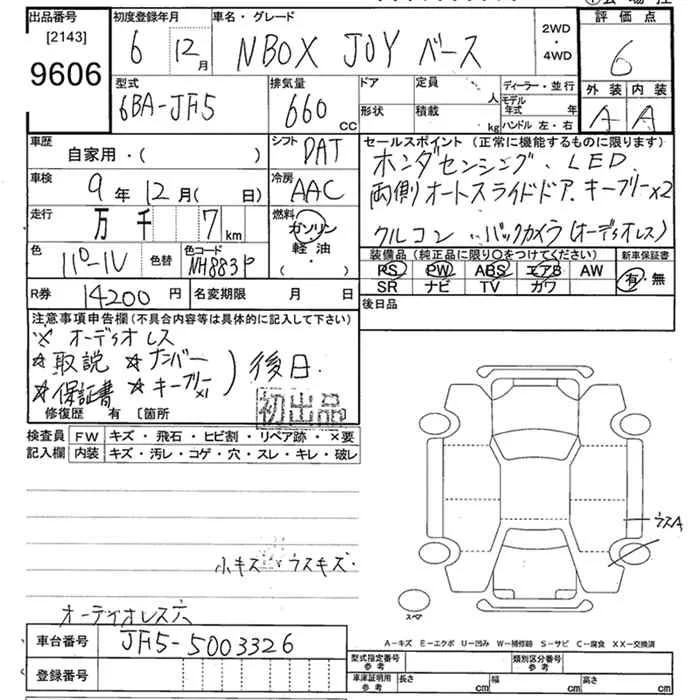 出品番号 初度登録年月 車名・グレード 評価点
[2143] 6 12月 NBOX JOY ベース 2WD・4WD 6
9606
型式 排気量 ドア 定員 ディーラー・並行 外装 内装
6BA-JF5 660cc 人 モデル年式 年 A A
形状 積載 kg ハンドル 左・右
車歴 シフト セールスポイント (正常に機能するものに限ります)
自家用・( ) DAT ホンダセンシング、LED
車検 冷房 両側オートスライドドア、キーフリーx2
9年12月( 日) AAC クルコン、バックカメラ(オーディオレス)
走行 燃料
万 千 7 km ガソリン
軽油
・( )・
色 色替 色コード 装備品 (純正品に限り○をつけてください) 新車保証書
NH883P PS PW ABS エアB AW 有・無
SR ナビ TV ガワ
R券 14200円 名変期限 月 日 後日品
注意事項申告欄(不具合内容等は具体的に記入して下さい)
※ オーディオレス
☆取説 ☆ナンバー
☆保証書 ☆キーフリーx1 ) 後日
修復歴 有 〔箇所
初出品
検査員 FW キズ・飛石・ヒビ割・リペア跡・×要
記入欄 内装 キズ・汚レ・コゲ・穴・スレ・キレ・破レ
ウスA
小キズ ウスキズ
スペア
オーディオレス穴
車台番号 JF5-5003326
A-キズ E-エクボ U-凹み W-補修跡 S-サビ C-腐食 XX-交換済
登録番号
型式指定番号 参考 類別区分番号 参考
車庫証明用 参考 長さ cm 幅 cm 高さ cm